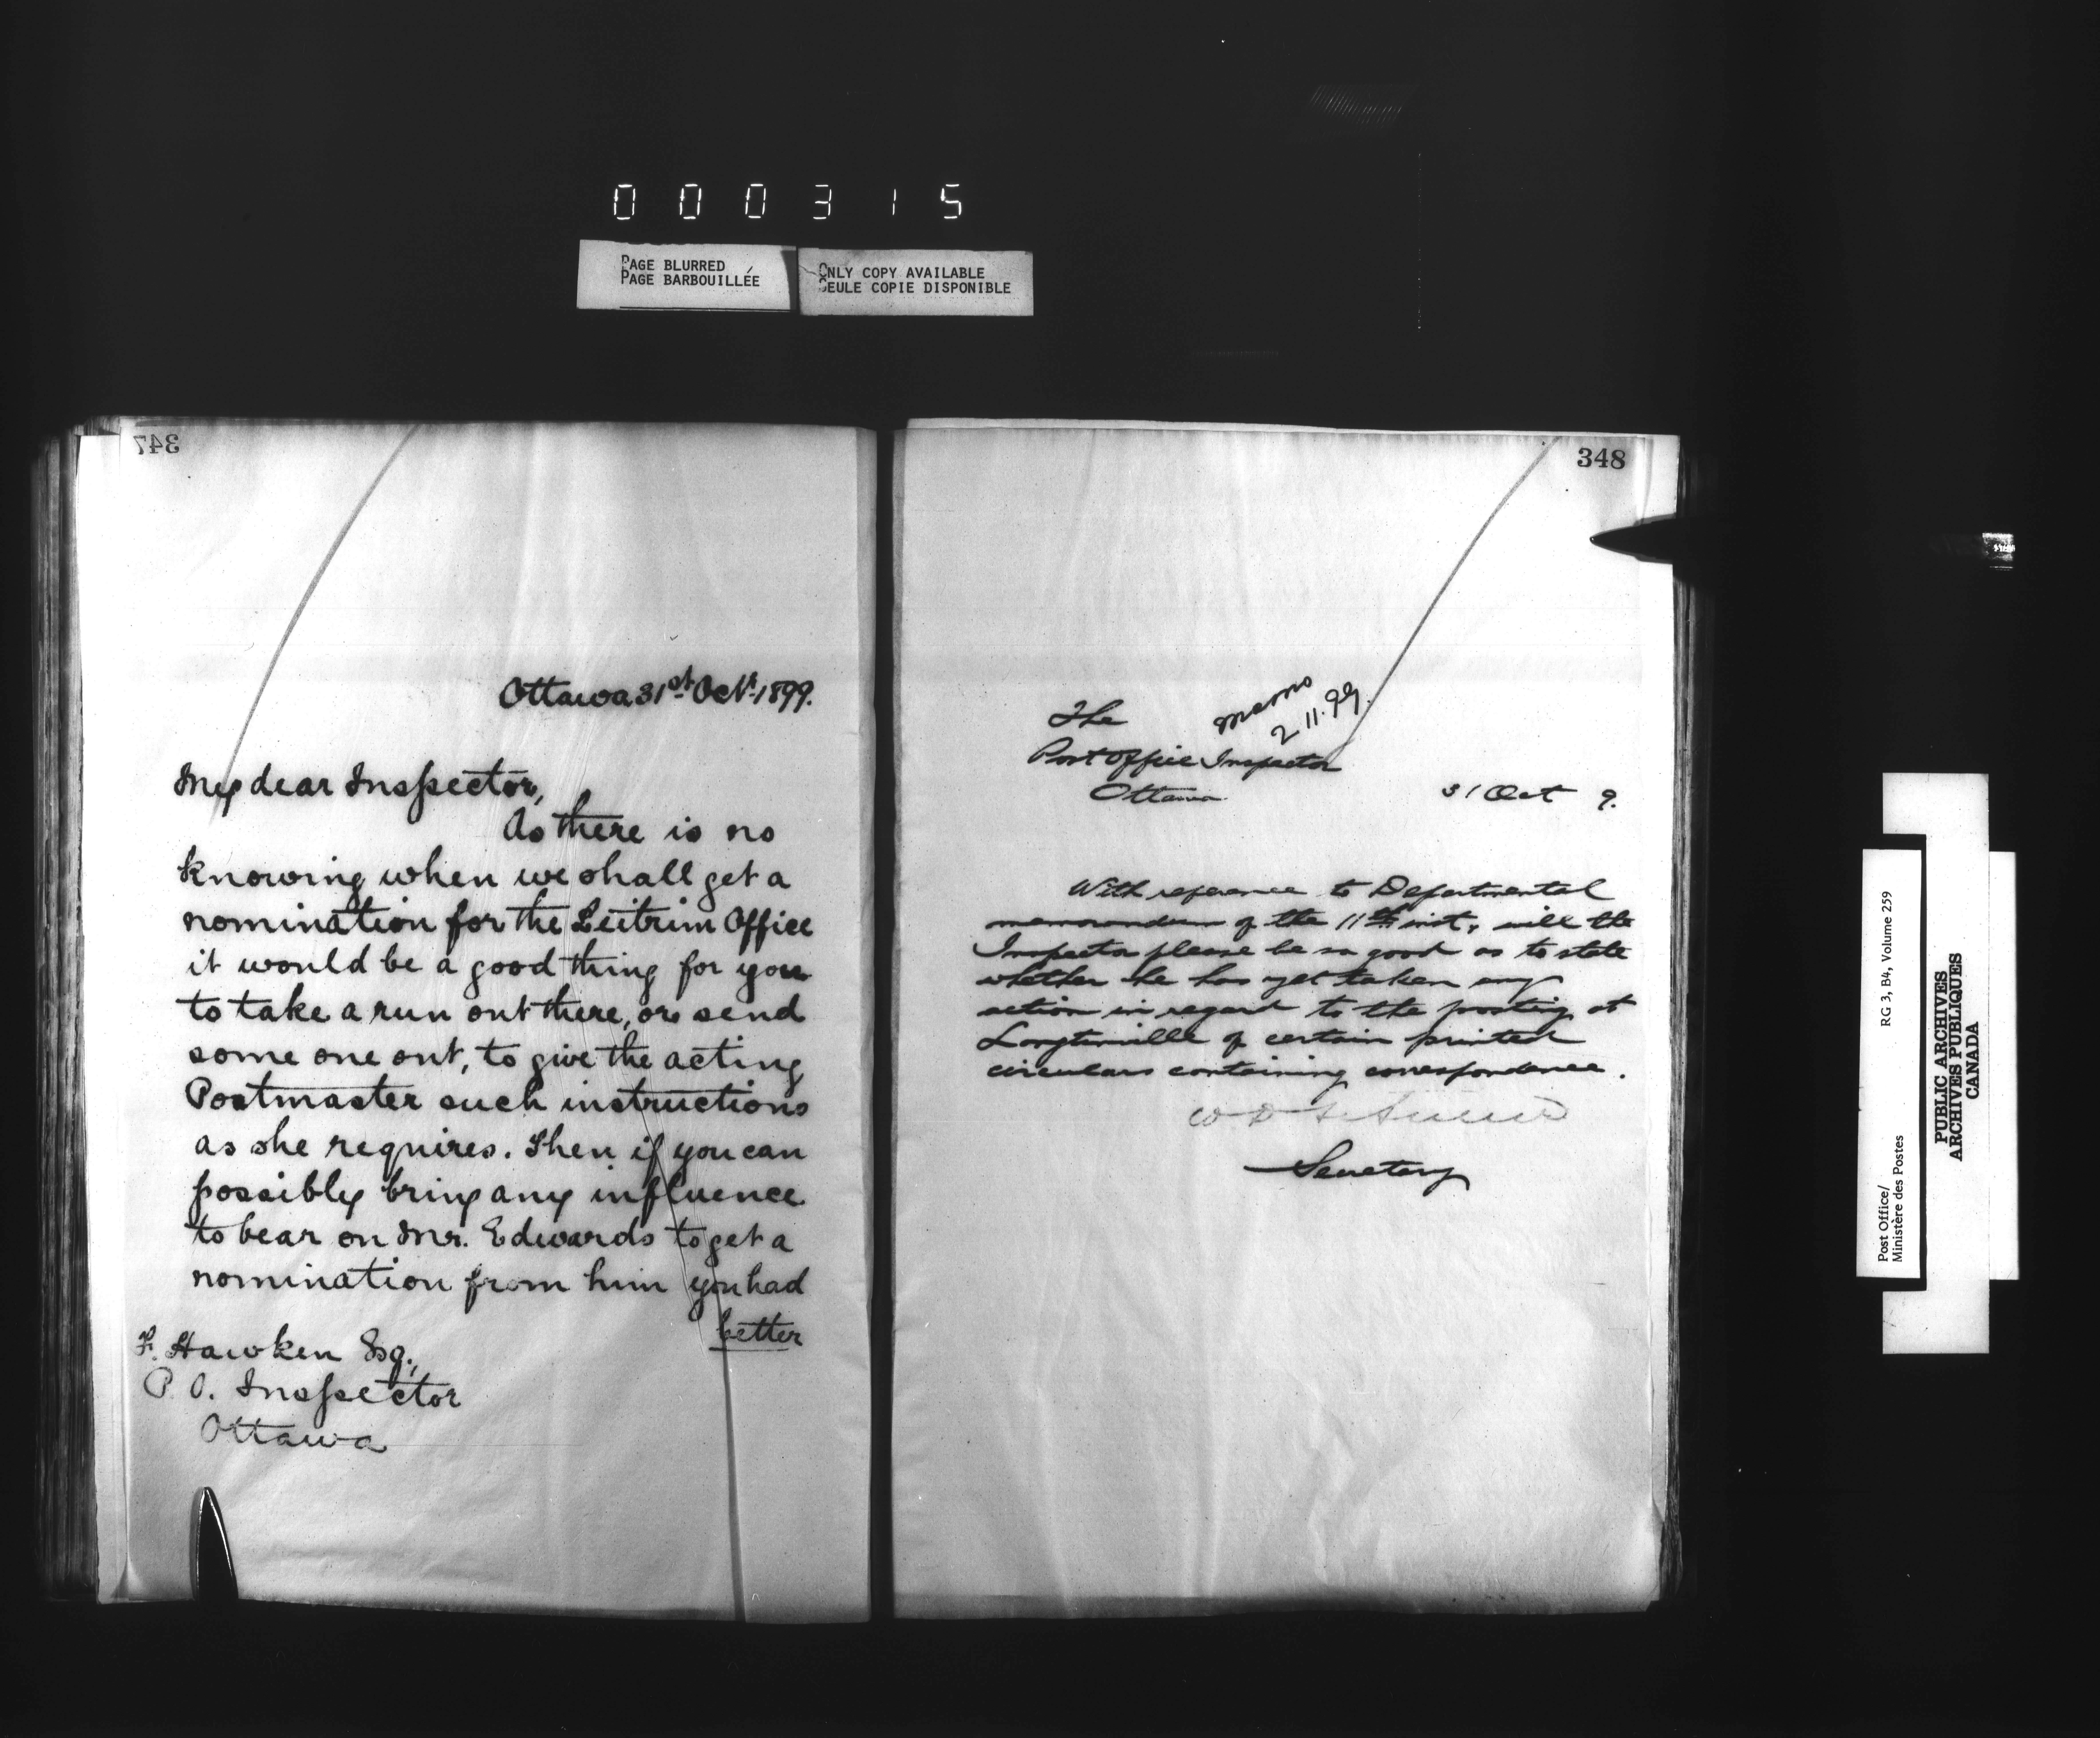 000315
PAGE BLURRED
PAGE BARBOUILLÉE
ONLY COPY AVAILABLE
SEULE COPIE DISPONIBLE
347
Ottawa 31st Octr. 1899.
My dear Inspector,
As there is no
knowing when we shall get a
nomination for the Leitrim Office
it would be a good thing for you
to take a run out there, or send
some one out, to give the acting
Postmaster such instructions
as she requires. Then if you can
possibly bring any influence
to bear on Mr. Edwards to get a
nomination from him you had
better
F. Hawken Esq.,
P. O. Inspector
Ottawa
348
The
Post Office Inspector
Ottawa
memo
2 11. 99.
31 Oct 9.
With reference to Departmental
memorandum of the 11th inst, will the
Inspector please be so good as to state
whether he has yet taken any
action in regard to the posting at
of certain printed
circulars containing correspondence.
Secretary
Post Office/
Ministère des Postes
RG 3, B4, Volume 259
PUBLIC ARCHIVES
ARCHIVES PUBLIQUES
CANADA